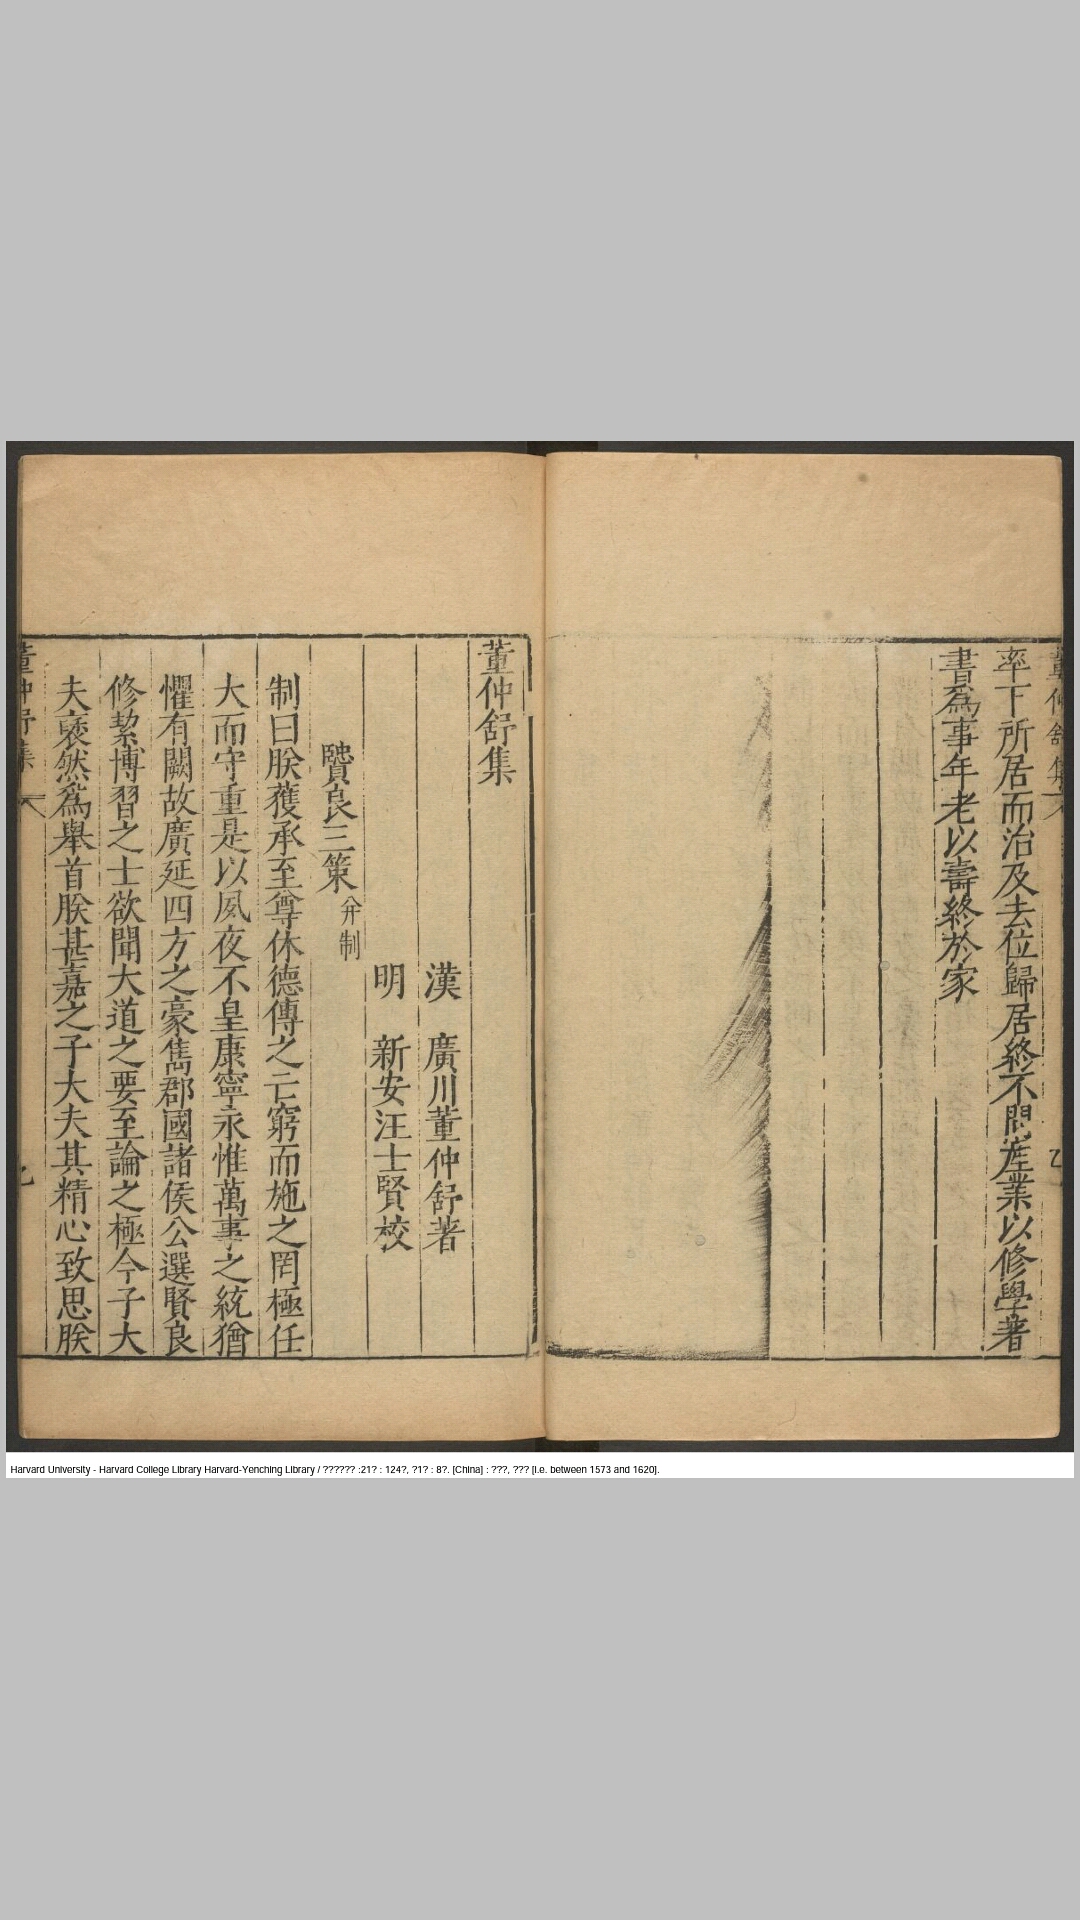 董仲舒集
率下所居而治及去位歸居終不問産業以修學著
書爲事年老以壽終於家
董仲舒集
漢　廣川董仲舒著
明　新安汪士賢校
賢良三策并制
制曰朕獲承至尊休德傳之亡窮而施之罔極任
大而守重是以夙夜不皇康寧永惟萬事之統猶
懼有闕故廣延四方之豪雋郡國諸侯公選賢良
修絜博習之士欲聞大道之要至論之極今子大
夫襃然爲舉首朕甚嘉之子大夫其精心致思朕
董仲舒集
Harvard University - Harvard College Library Harvard-Yenching Library / ?????? :21? : 124?, ?1? : 8?. [China] : ???, ??? [i.e. between 1573 and 1620].